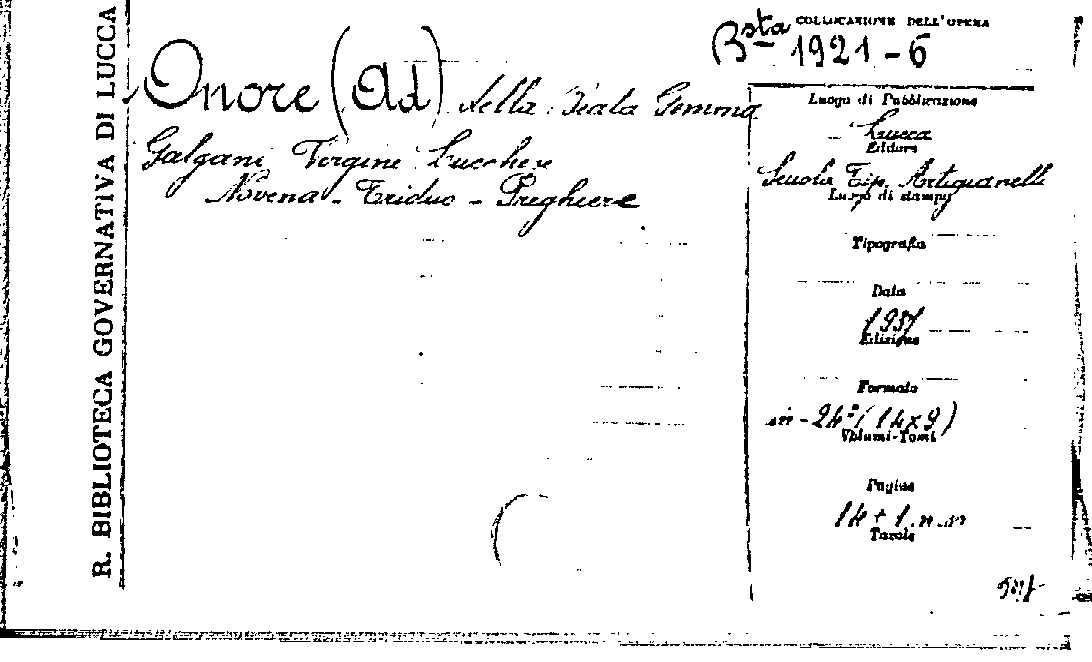 R. BIBLIOTECA GOVERNATIVA DI LUCCA
COLLOCAZIONE DELL'OPERA
Bsta 1921-6
Onore (Ad) della Beata Gemma
Galgani Vergine Lucchese
Novena - Triduo - Preghiere
Luogo di Pubblicazione
Lucca
Editore
Scuola Tip. Artigianelli
Luogo di stampa
Tipografia
Data
Edizione
Formato
in-24°(14x9)
Volumi-Tomi
Pagine
14+1 n.n.
Tavole